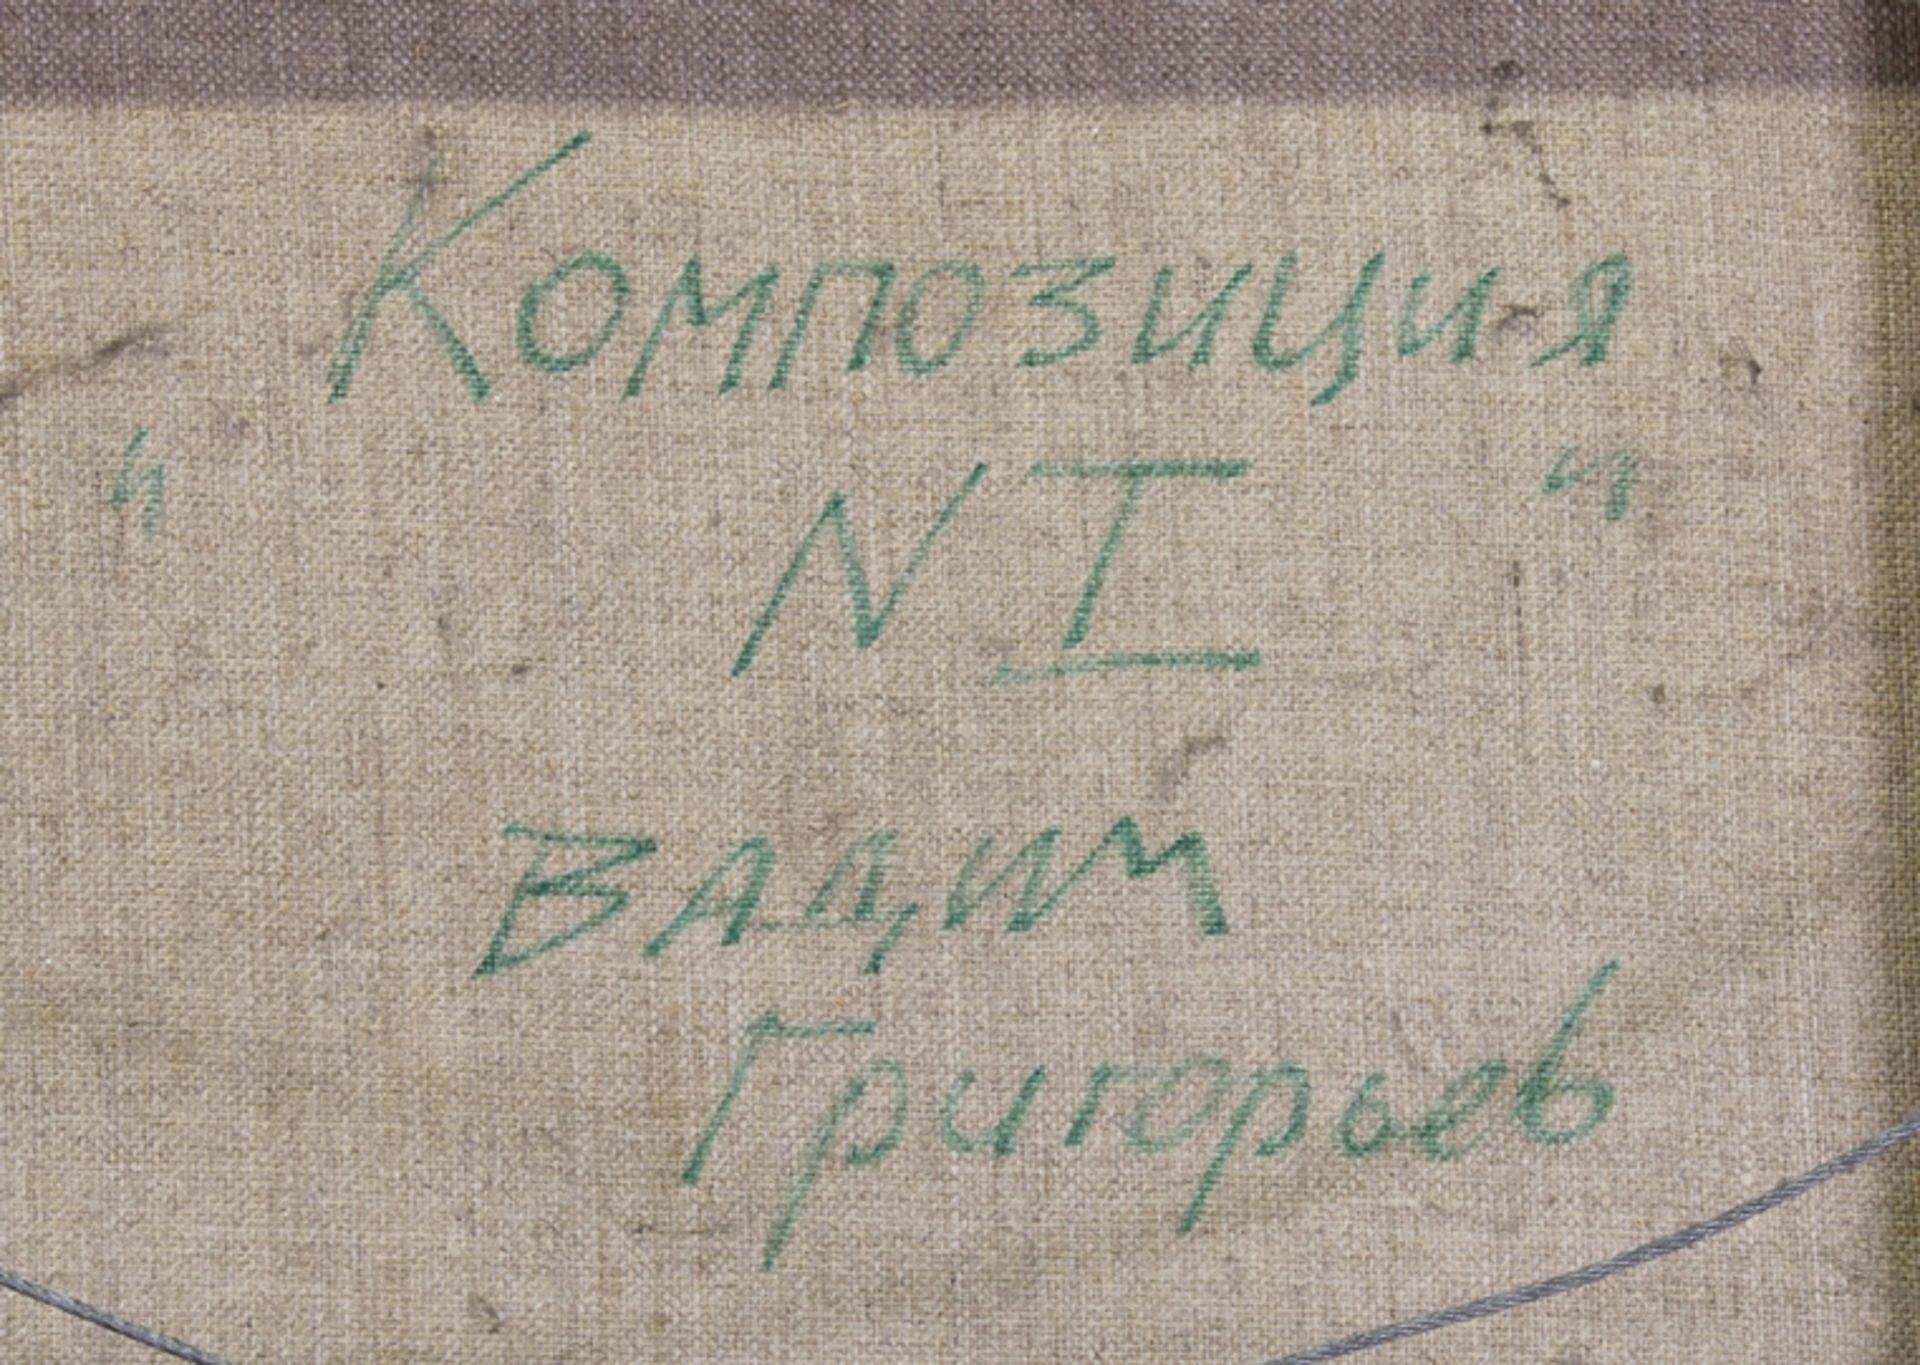 Композиция
" N I "
Вадим
Григорьев